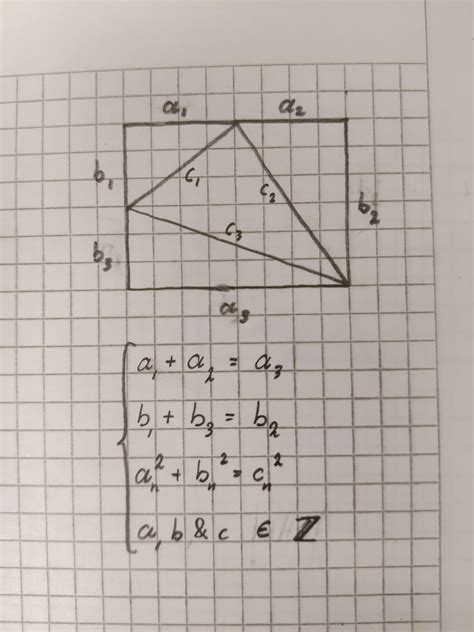 a₁ a₂
b₁ c₁ c₂ b₂
b₃ c₃
a₃
a₁ + a₂ = a₃
b₁ + b₃ = b₂
aₙ² + bₙ² = cₙ²
a, b & c ∈ ℤ